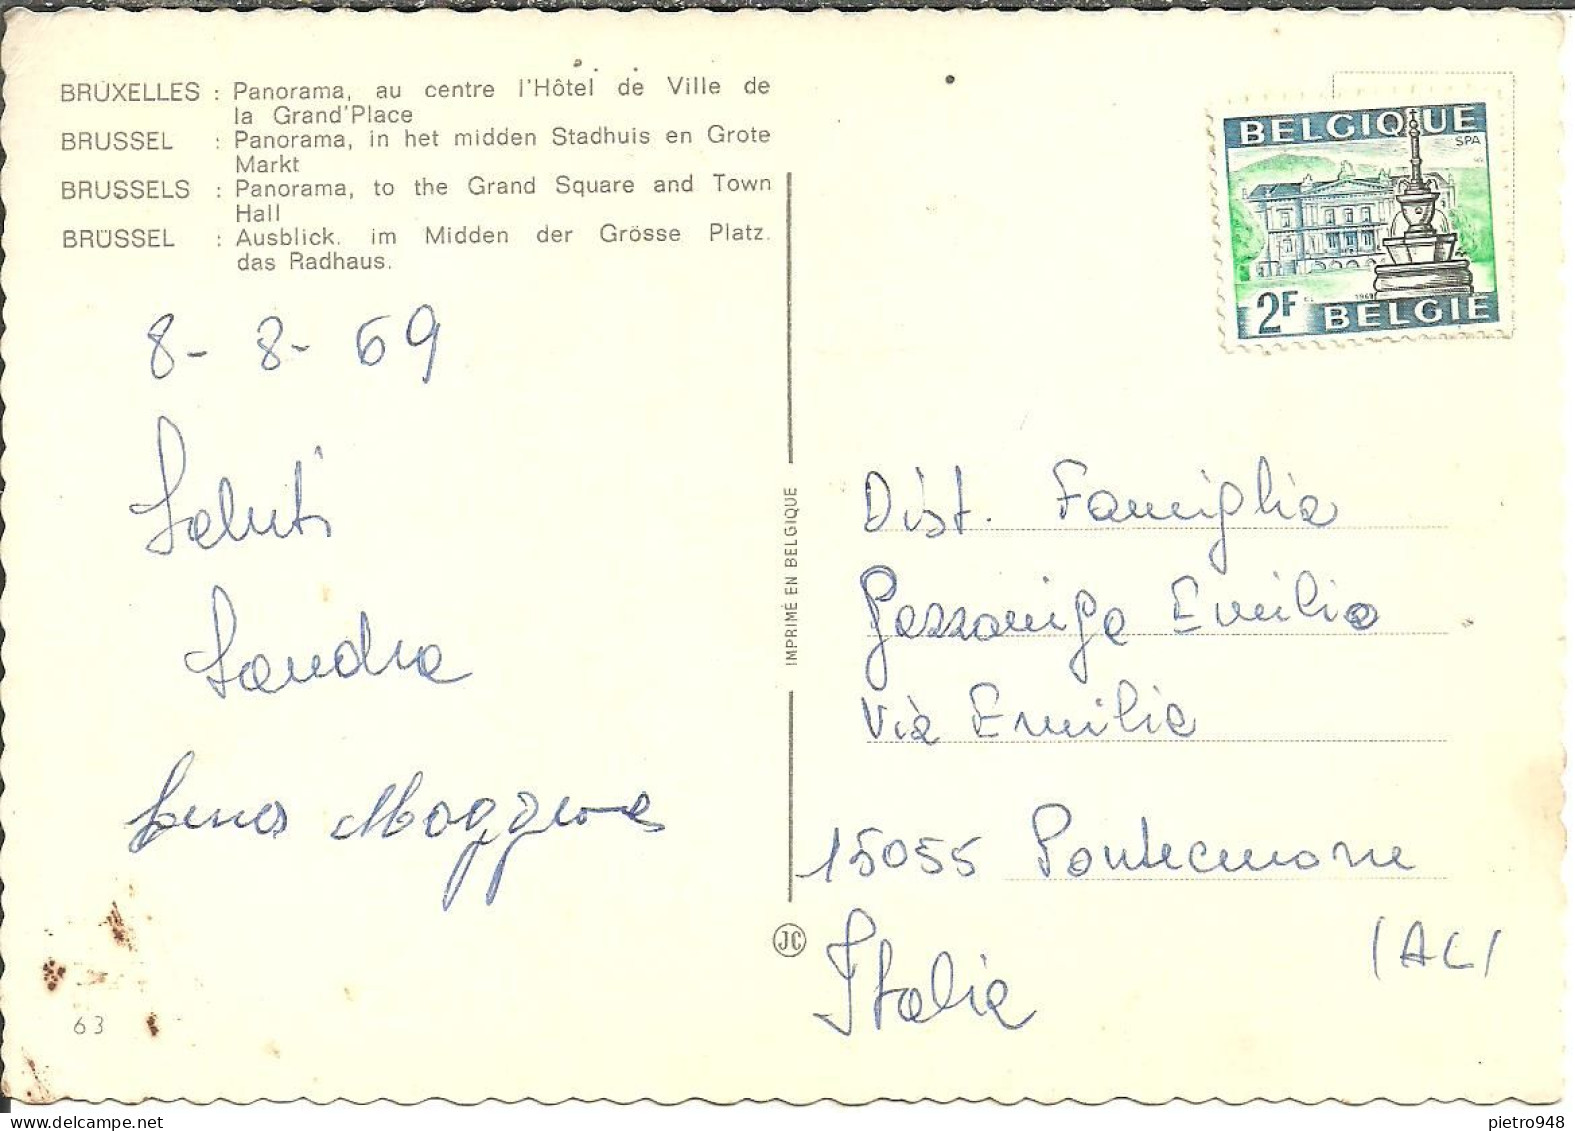 BRUXELLES : Panorama, au centre l'Hôtel de Ville de
la Grand'Place
BRUSSEL : Panorama, in het midden Stadhuis en Grote
Markt
BRUSSELS : Panorama, to the Grand Square and Town
Hall
BRÜSSEL : Ausblick. im Midden der Grösse Platz.
das Radhaus.
8-8-69
Saluti
Sandra
IMPRIMÉ EN BELGIQUE
JC
63
BELGIQUE
SPA
2F
BELGIE
Dist. Famiglia
Gazzaniga Emilio
Via Emilia
15055 Pontecurone
(AL)
Italia
pietro948